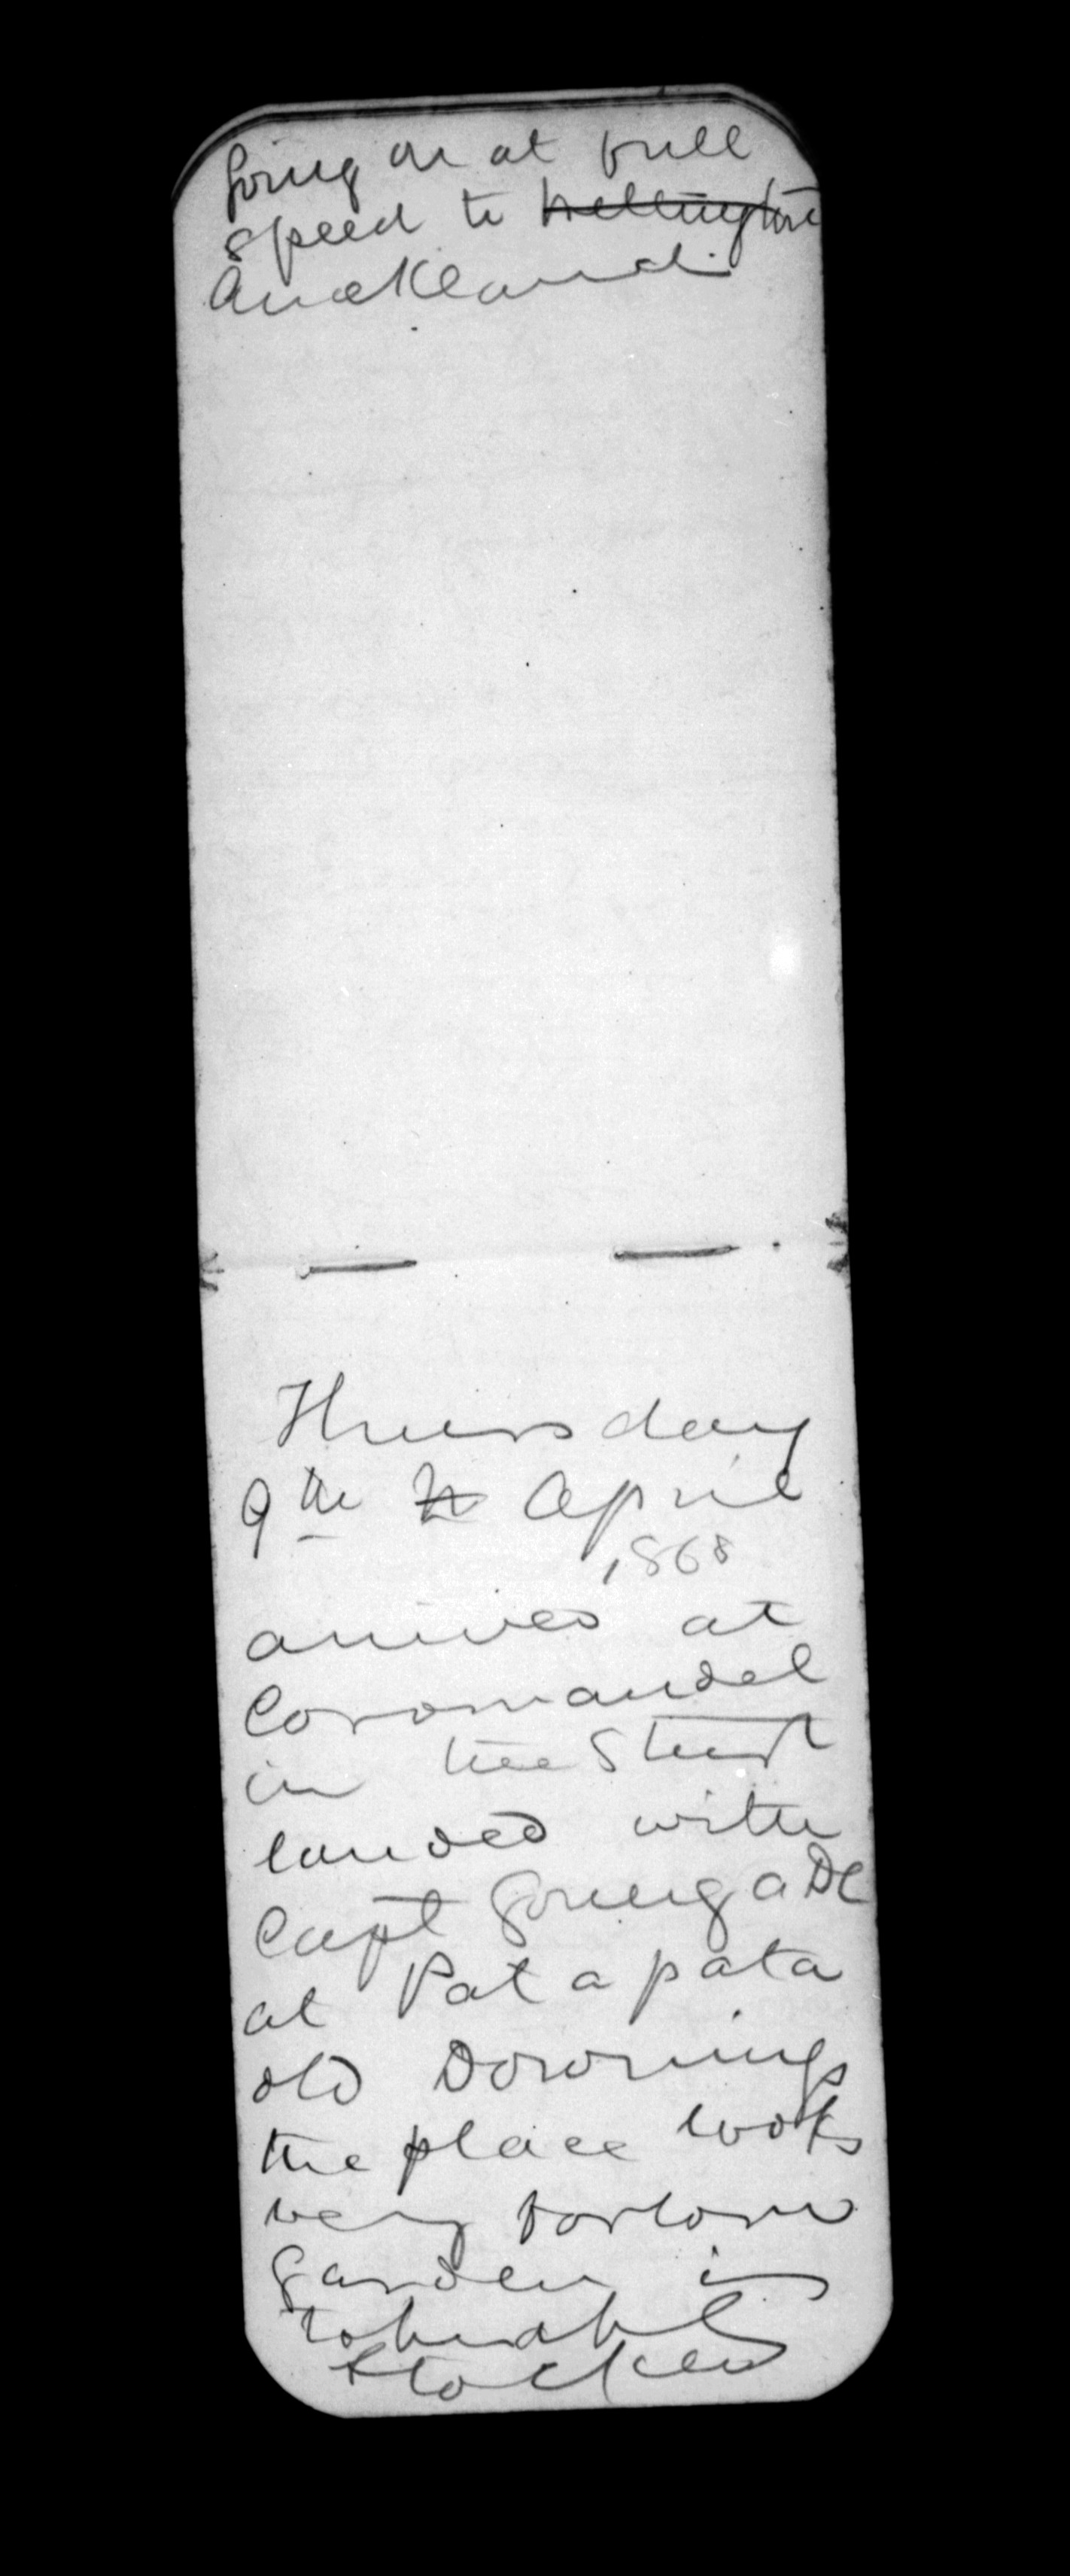 going on at full
speed to Wellington
Auckland
Thursday
9th April
1868
arrived at
Coromandel
in the Sturt
landed with
Capt Goring ADC
at Patapata
old Downings
the place looks
very forlorn
garden is
tolerably
stocked